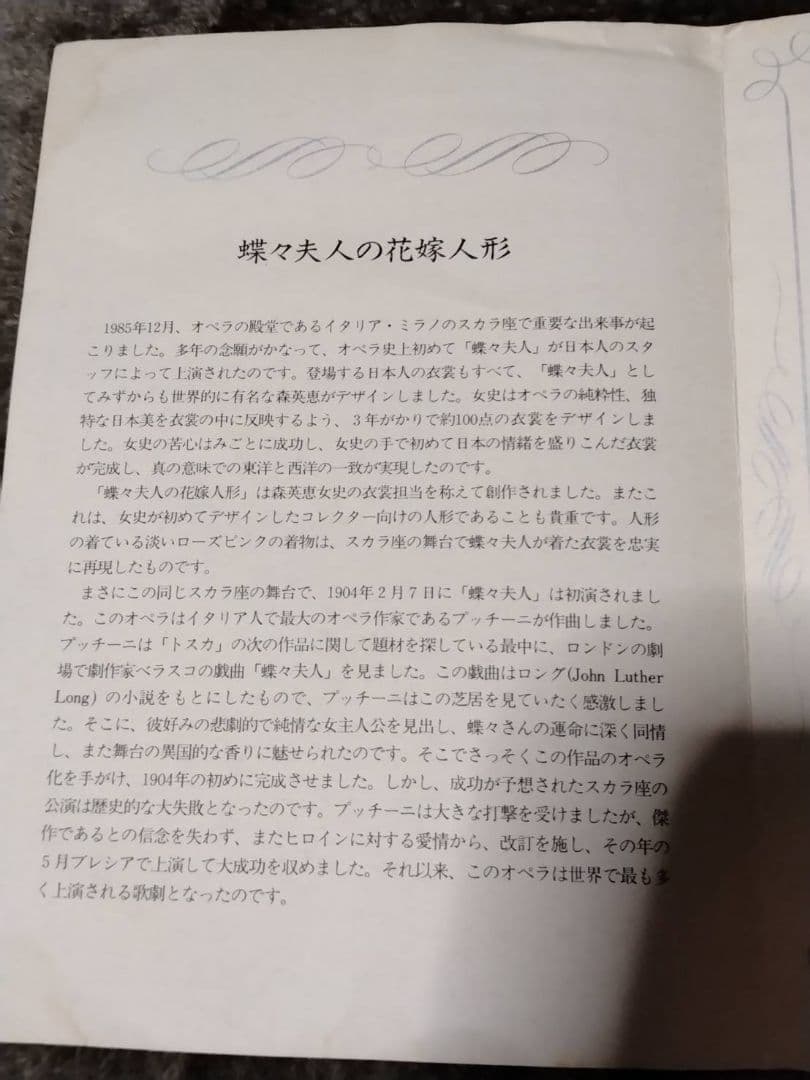 蝶々夫人の花嫁人形
1985年12月、オペラの殿堂であるイタリア・ミラノのスカラ座で重要な出来事が起
こりました。多年の念願がかなって、オペラ史上初めて「蝶々夫人」が日本人のスタ
ッフによって上演されたのです。登場する日本人の衣裳もすべて、「蝶々夫人」とし
てみずからも世界的に有名な森英恵がデザインしました。女史はオペラの純粋性、独
特な日本美を衣裳の中に反映するよう、3年がかりで約100点の衣裳をデザインしま
した。女史の苦心はみごとに成功し、女史の手で初めて日本の情緒を盛りこんだ衣裳
が完成し、真の意味での東洋と西洋の一致が実現したのです。
「蝶々夫人の花嫁人形」は森英恵女史の衣裳担当を称えて創作されました。またこ
れは、女史が初めてデザインしたコレクター向けの人形であることも貴重です。人形
の着ている淡いローズピンクの着物は、スカラ座の舞台で蝶々夫人が着た衣裳を忠実
に再現したものです。
まさにこの同じスカラ座の舞台で、1904年2月7日に「蝶々夫人」は初演されまし
た。このオペラはイタリア人で最大のオペラ作家であるプッチーニが作曲しました。
プッチーニは「トスカ」の次の作品に関して題材を探している最中に、ロンドンの劇
場で劇作家ベラスコの戯曲「蝶々夫人」を見ました。この戯曲はロング(John Luther
Long) の小説をもとにしたもので、プッチーニはこの芝居を見ていたく感激しまし
た。そこに、彼好みの悲劇的で純情な女主人公を見出し、蝶々さんの運命に深く同情
し、また舞台の異国的な香りに魅せられたのです。そこでさっそくこの作品のオペラ
化を手がけ、1904年の初めに完成させました。しかし、成功が予想されたスカラ座の
公演は歴史的な大失敗となったのです。プッチーニは大きな打撃を受けましたが、傑
作であるとの信念を失わず、またヒロインに対する愛情から、改訂を施し、その年の
5月ブレシアで上演して大成功を収めました。それ以来、このオペラは世界で最も多
く上演される歌劇となったのです。